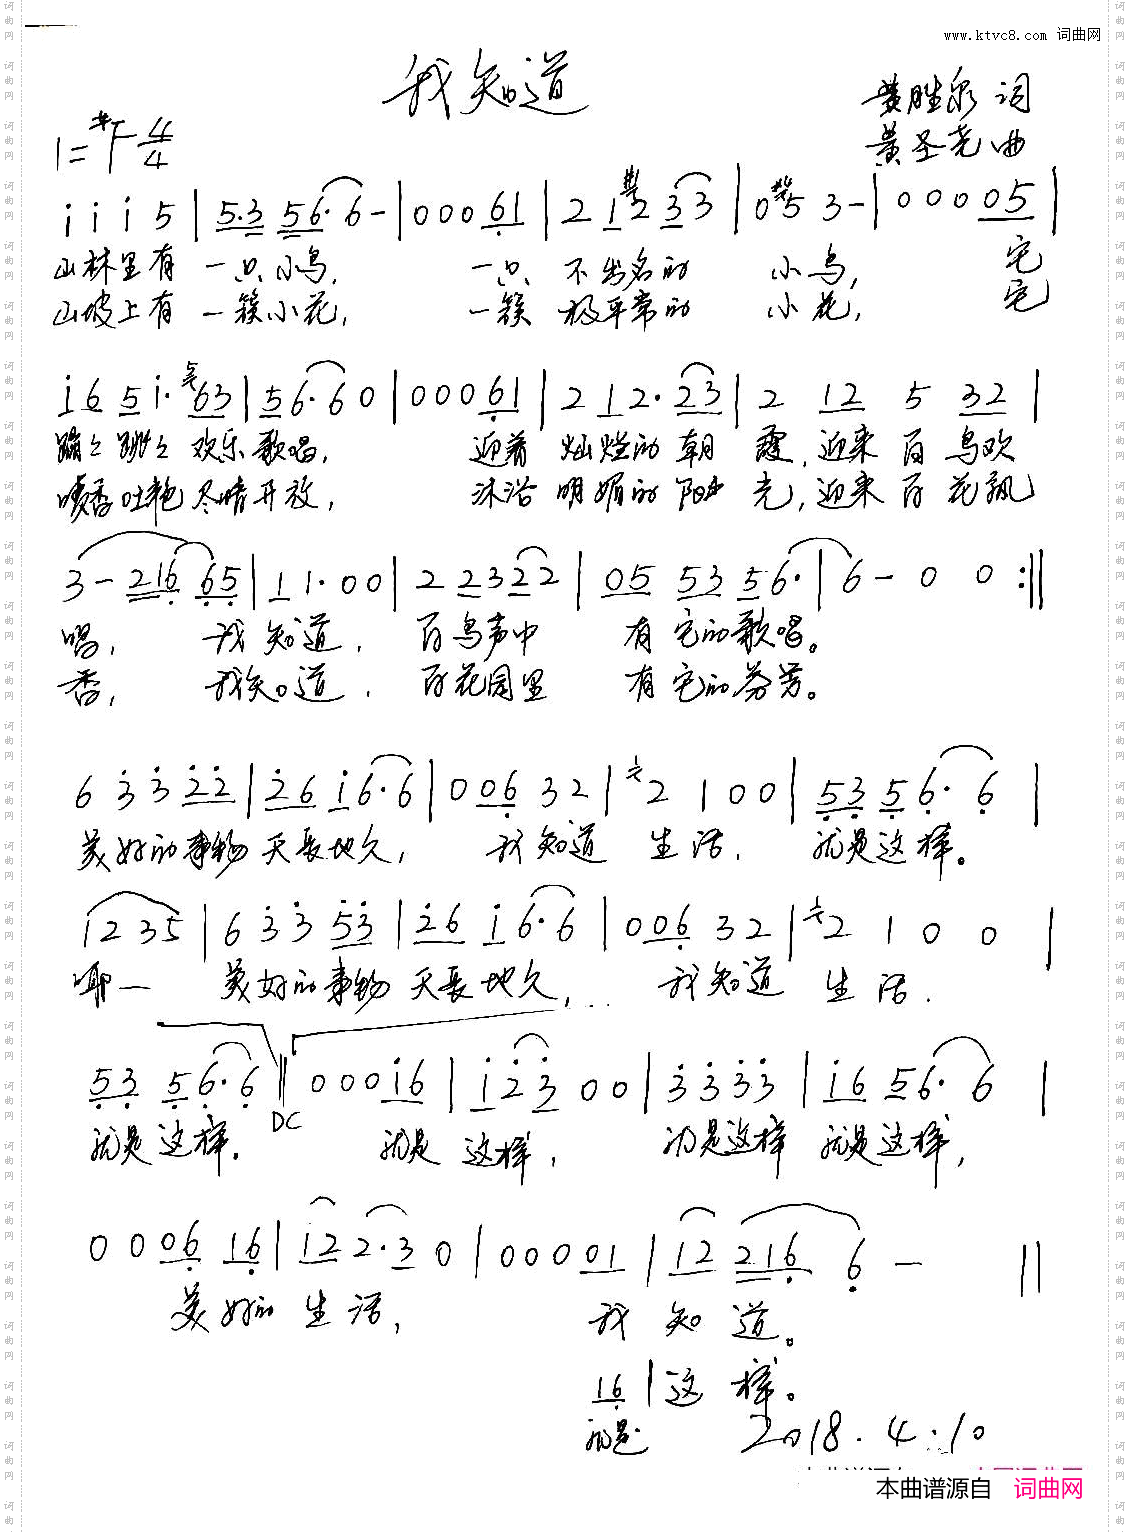 www.ktvc8.com 词曲网
我知道
黄胜泉 词
黄圣尧 曲
1=#F 4/4
i i i 5 | 5.3 56. 6 - | 0 0 0 61 | 2 1 2 3 3 | 0 5 3 - | 0 0 0 05 |
山林里有 一只小鸟, 一只 不出名的 小鸟, 它
山坡上有 一簇小花, 一簇 极平常的 小花, 它
i6 5i. 63 | 56. 6 0 | 0 0 0 61 | 2 12. 23 | 2 12 5 32 |
蹦々跳々欢乐歌唱, 迎着 灿烂的朝霞,迎来百鸟欢
喷香吐艳尽情开放, 沐浴 明媚的阳光,迎来百花飘
3 - 216 65 | 1 1. 0 0 | 2 2322 | 05 53 56. | 6 - 0 0 :||
唱, 我知道, 百鸟声中 有它的歌唱。
香, 我知道, 百花园里 有它的芬芳。
6 3 3 22 | 26 i6. 6 | 0 06 3 2 | 2 1 0 0 | 53 56. 6 |
美好的事物天长地久, 我知道 生活, 就是这样。
1235 | 6 3 3 53 | 26 i 6. 6 | 0 06 3 2 | 2 1 0 0 |
耶— 美好的事物天长地久, 我知道 生活,
53 56. 6 || 0 0 0 i6 | i 2 3 0 0 | 3 3 3 3 | i6 56. 6 |
DC
就是这样。 就是 这样, 就是这样 就是这样,
0 0 06 16 | 12 2.3 0 | 0 0 0 01 | 12 216 6 - ||
美好的 生活, 我 知 道。
16 | 这 样。
就是
2018.4.10
本曲谱源自 词曲网